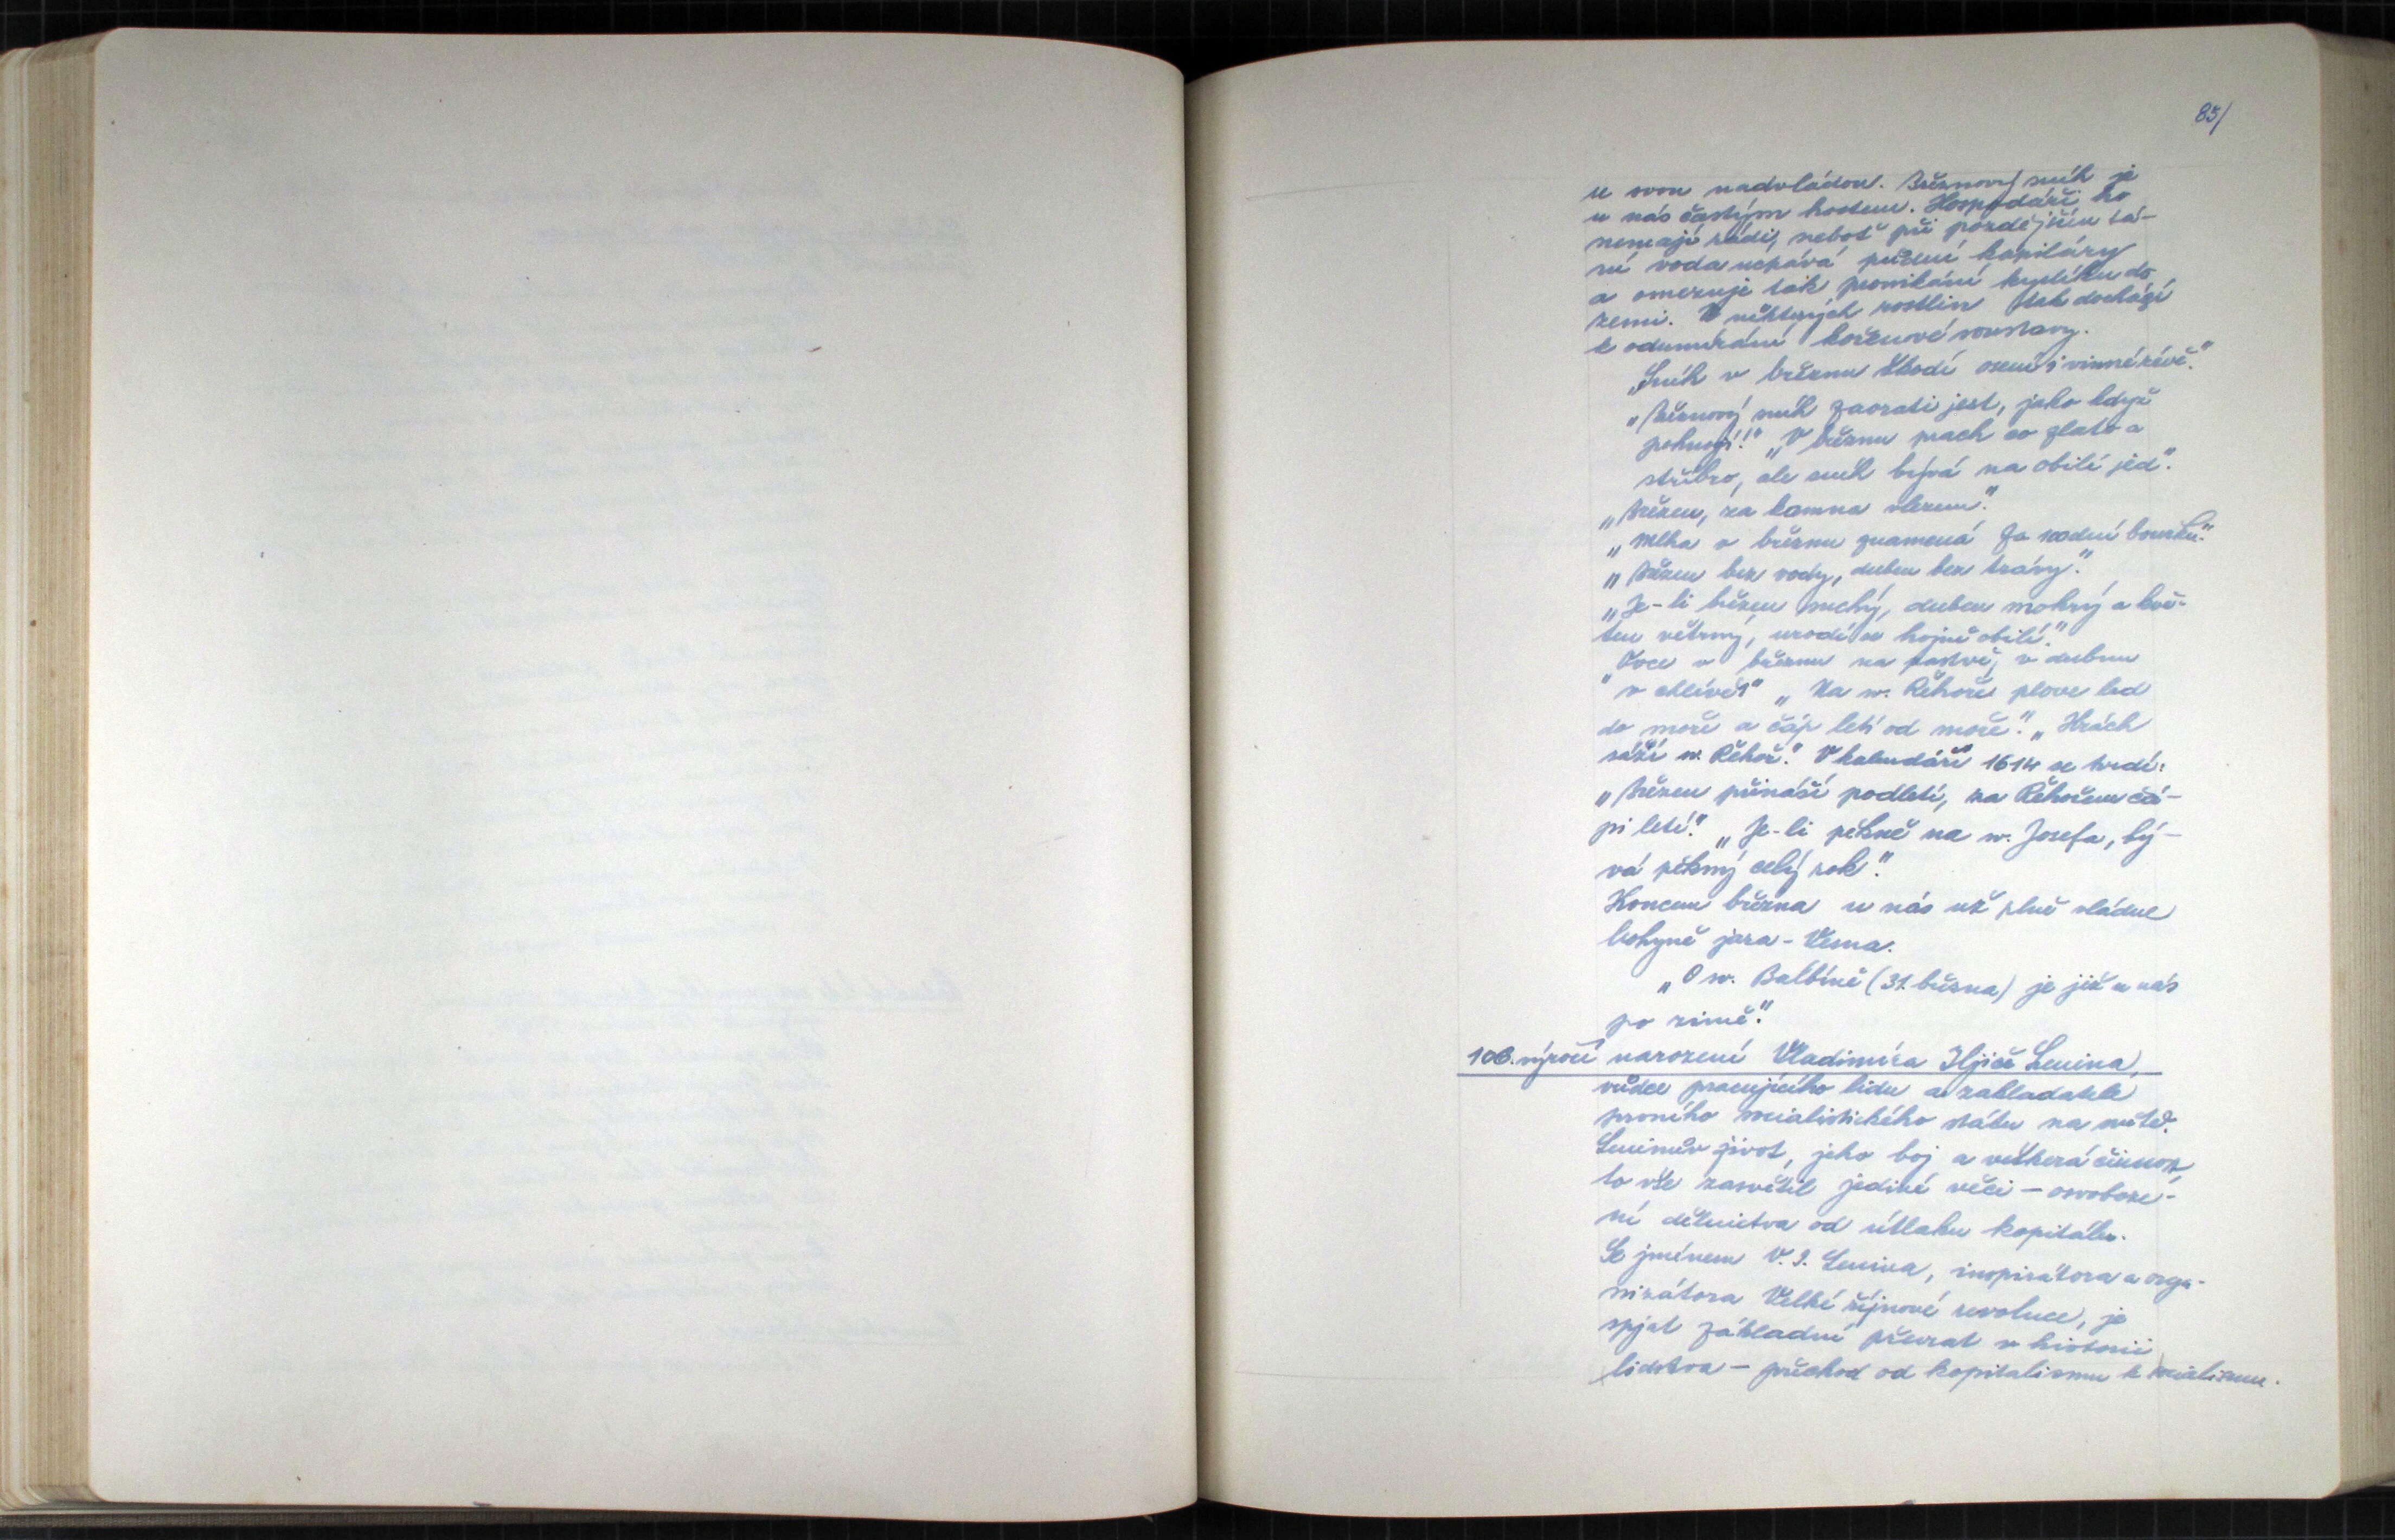 85/
se svou nadvládou. Březnový sníh je
u nás častým hostem. Hospodáři ho
nemají rádi, neboť při pozdějším tá-
ní voda ucpává půdní kapiláry
a omezuje tak pronikání kyslíku do
zemi. U některých rostlin pak dochází
k odumírání kořenové soustavy.
„Sníh v březnu škodí osení i vinné révě."
„Březnový sníh zaorati jest, jako když
pohnojí!" „V březnu prach co zlato a
stříbro, ale sníh bývá na obilí jed".
„Březen, za kamna vlezem".
„Mlha v březnu znamená za 100 dní bouřku."
„Březen bez vody, duben bez trávy".
„Je-li březen suchý, duben mokrý a kvě-
ten větrný, urodí se hojně obilí."
„Ovce v březnu na pastvě, v dubnu
v chlívě!" „Na sv. Řehoře plove led
do moře a čáp letí od moře". „Hrách
sází sv. Řehoř." V kalendáři 1614 se tvrdí:
„Březen přináší podletí, za Řehořem čá-
pi letí." „Je-li pěkně na sv. Josefa, bý-
vá pěkný celý rok".
Koncem března u nás už plně vládne
bohyně jara - Vesna.
„O sv. Balbíně (31. března) je již u nás
po zimě".
106. výročí narození Vladimíra Iljiče Lenina,
vůdce pracujícího lidu a zakladatele
prvního socialistického státu na světě.
Leninův život, jeho boj a veškerá činnost,
to vše zasvětil jediné věci – osvoboze-
ní dělnictva od útlaku kapitálu.
Se jménem V. I. Lenina, inspirátora a orga-
nizátora Velké říjnové revoluce, je
spjat základní převrat v historii
lidstva – přechod od kapitalismu k socialismu.